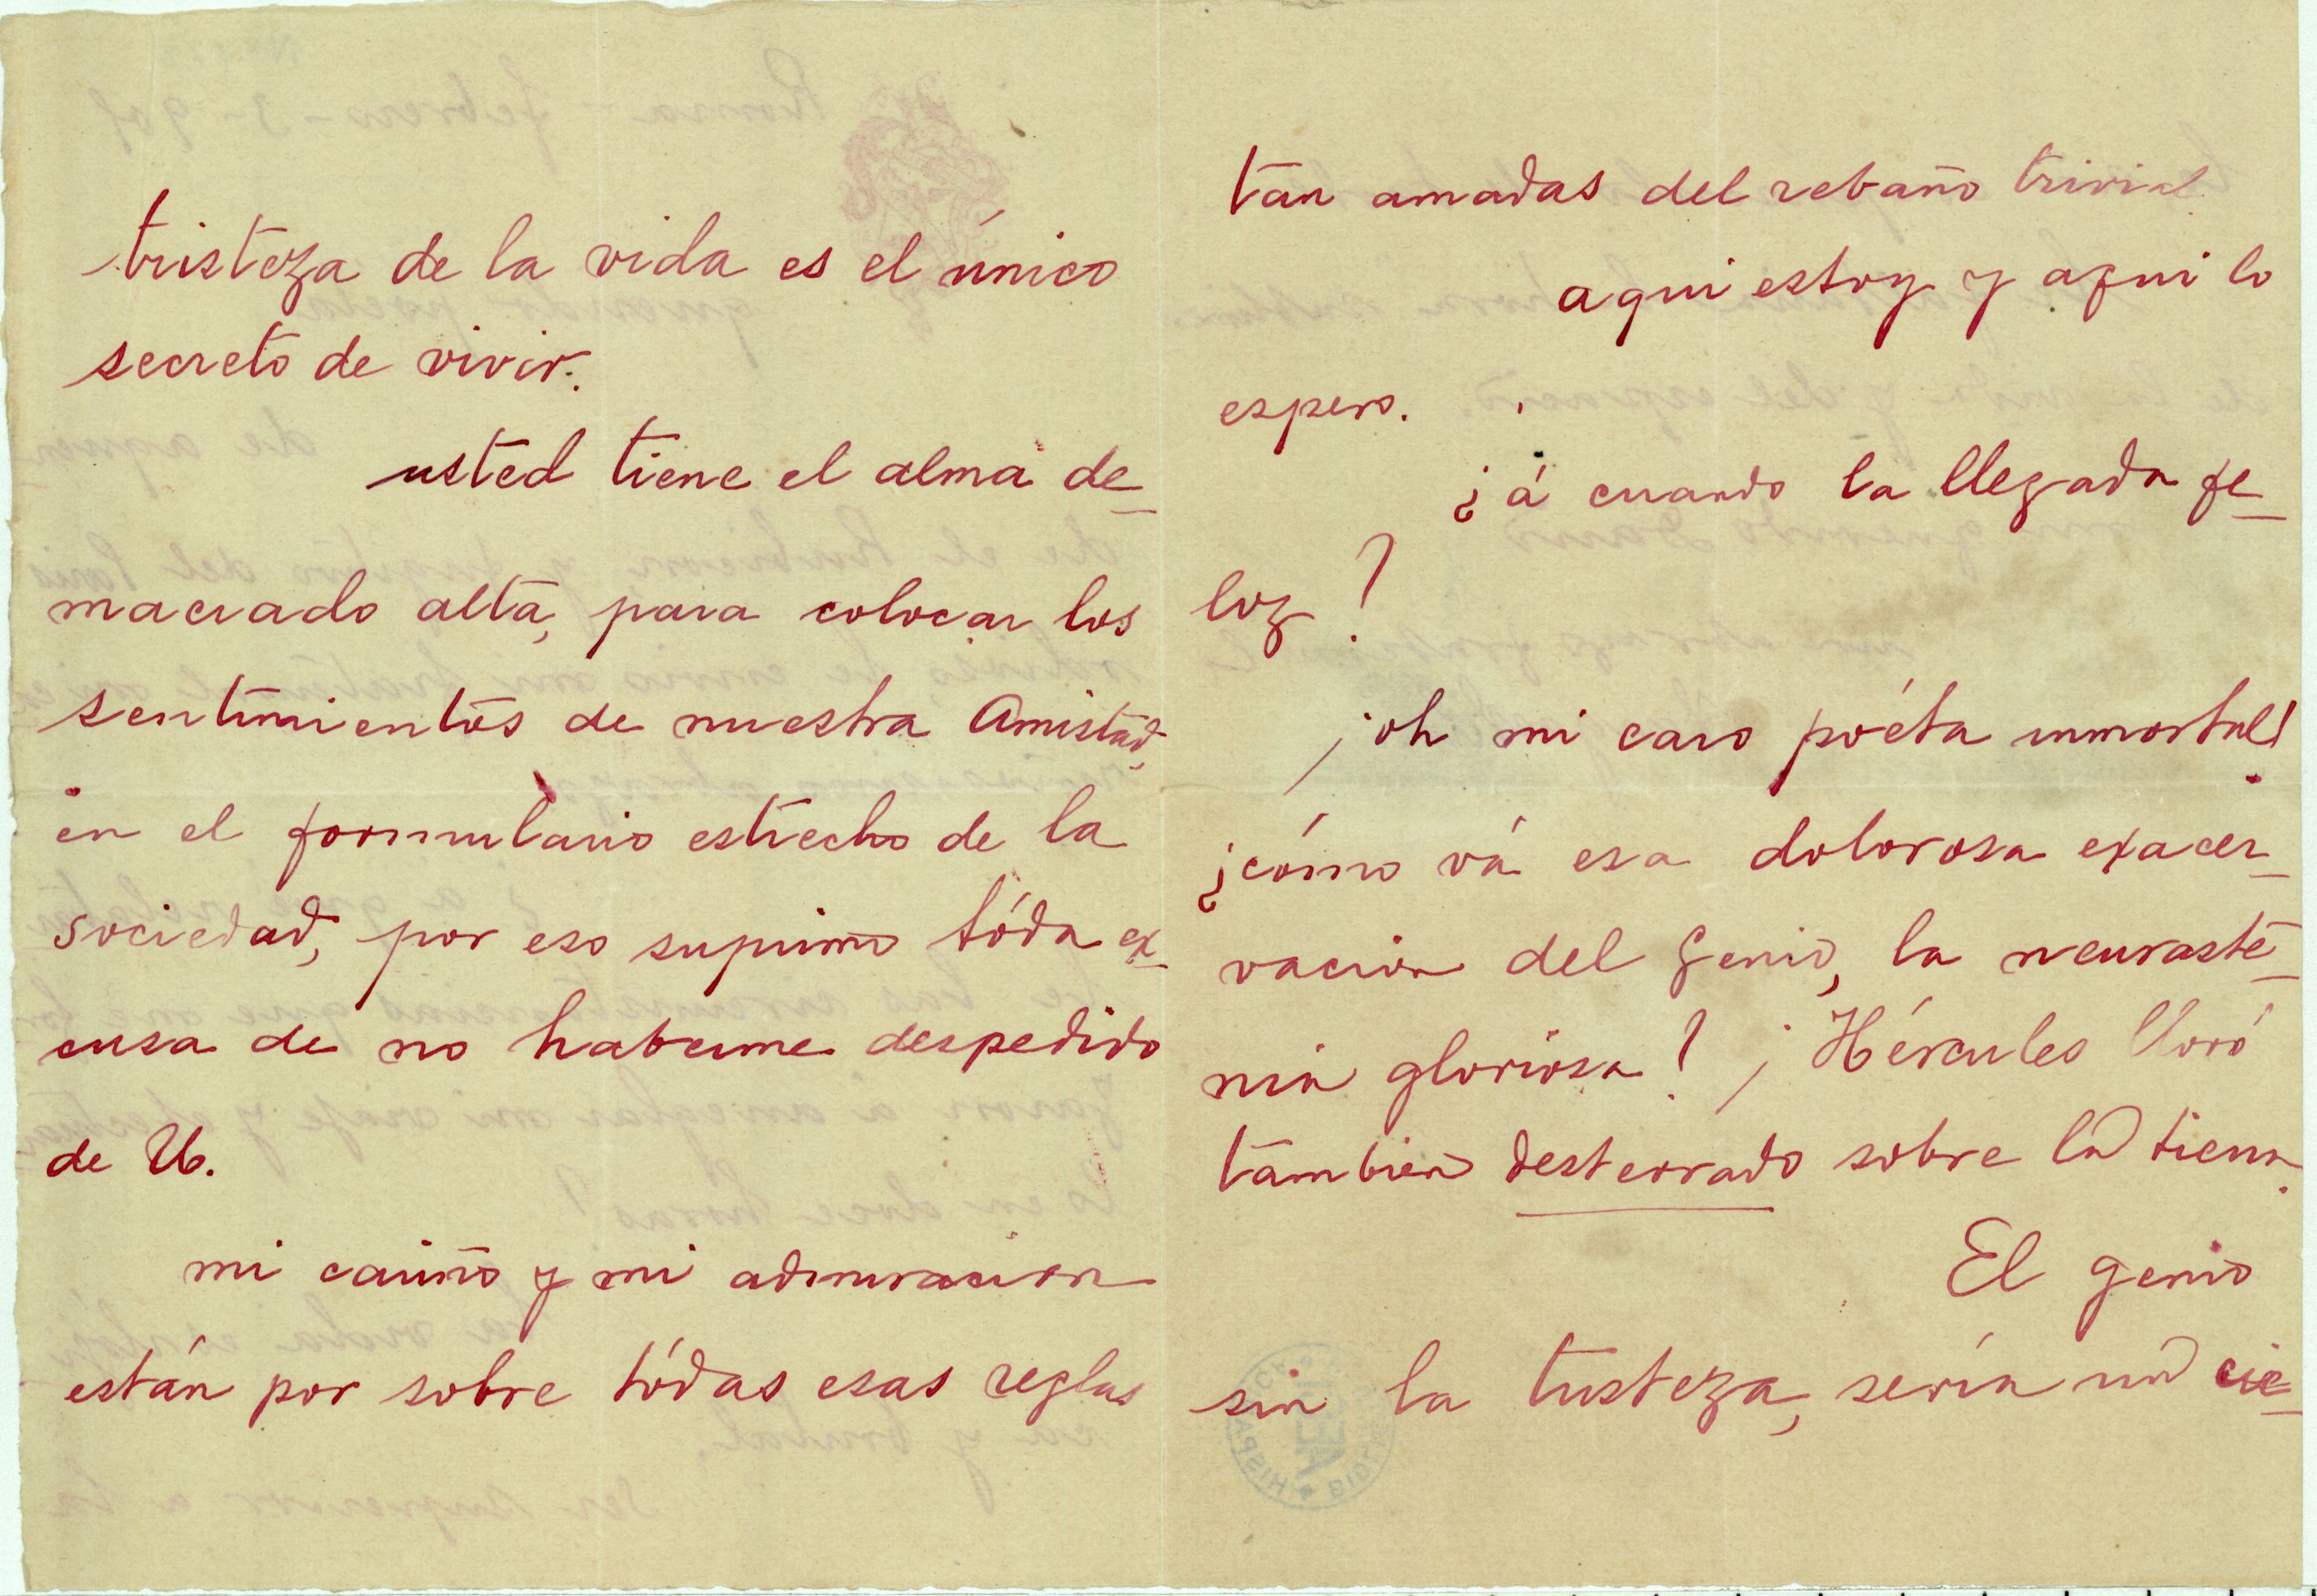 tristeza de la vida es el único
secreto de vivir.
usted tiene el alma de-
maciado alta, para colocar los
sentimientos de nuestra Amistad,
en el formulario estrecho de la
sociedad, por eso suprimo tóda ex-
cusa de no haberme despedido
de U.
mi cariño y mi admiracion
están por sobre tódas esas reglas
tan amadas del rebaño trivial.
aqui estoy y aqui lo
espero.
¿á cuando la llegada fe-
loz?
¡oh mi caro poéta inmortal!
¿cómo vá esa dolorosa exacer-
vacion del genio, la neuraste-
nia gloriosa? ¡Hércules lloró
tambien desterrado sobre la tierra.
El genio
sin la tristeza, seria un cie-